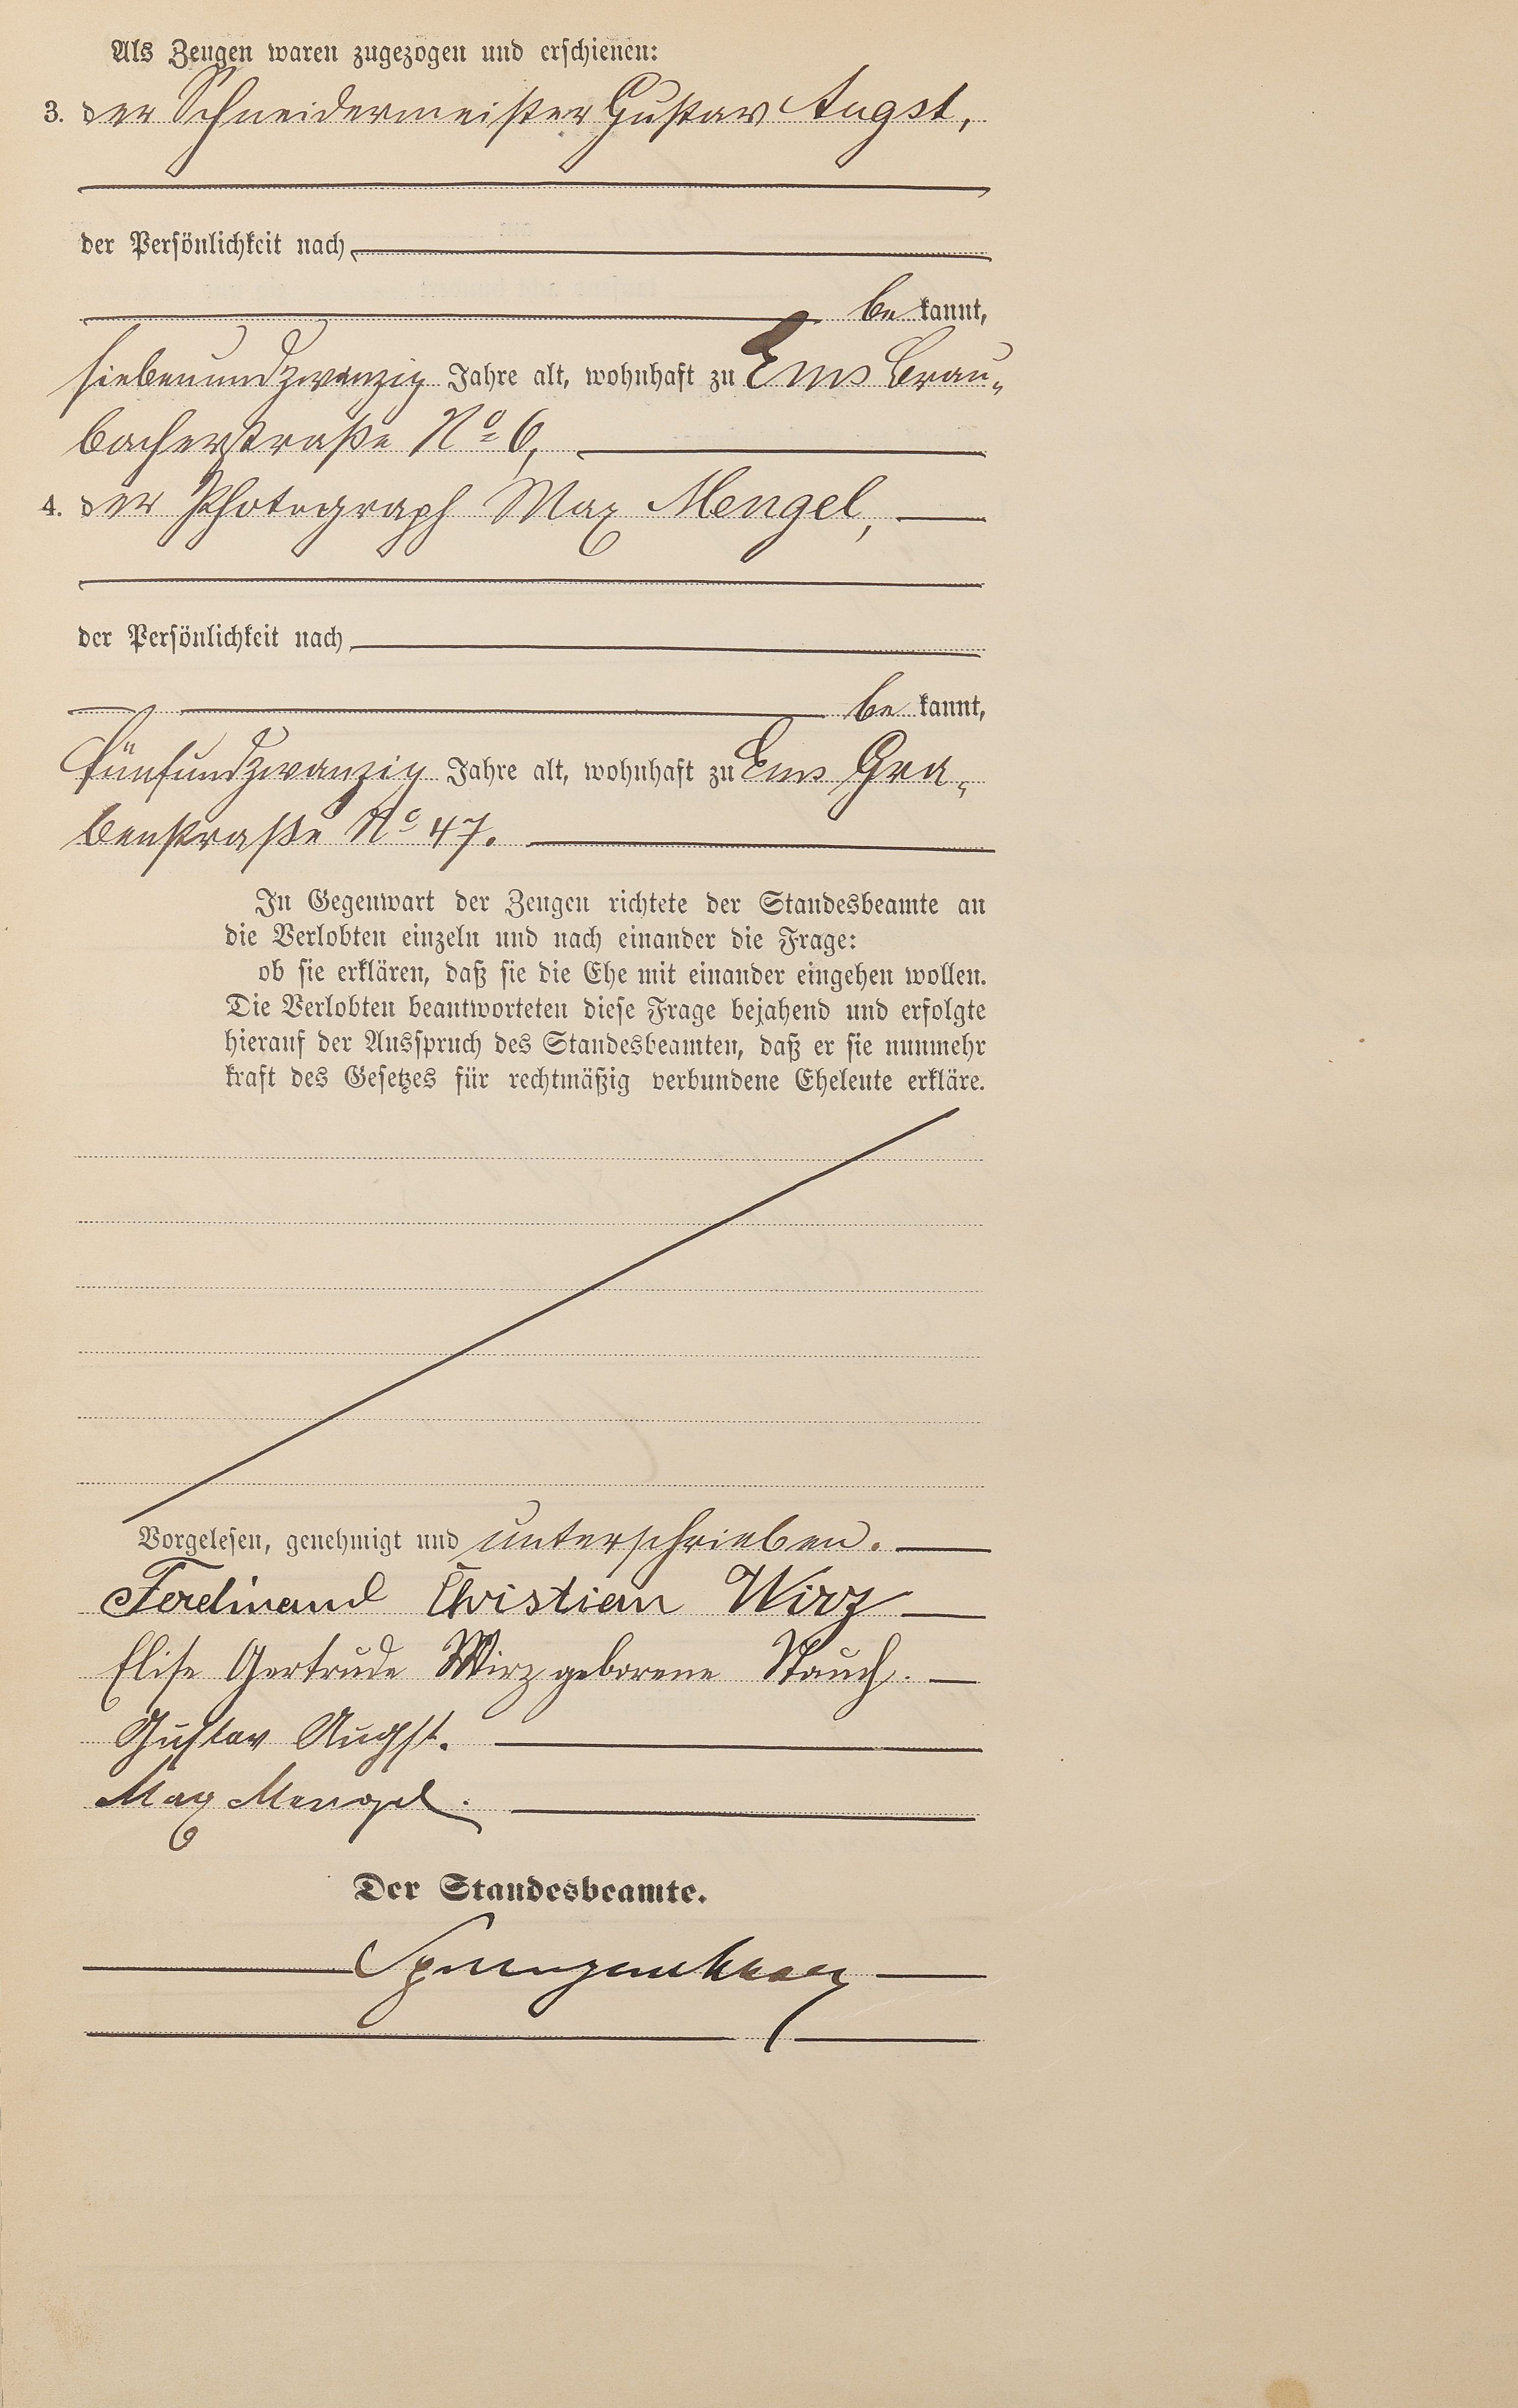 Als Zeugen waren zugezogen und erschienen:
3. der Schneidermeister Gustav Augst,
der Persönlichkeit nach
be kannt,
siebenundzwanzig Jahre alt, wohnhaft zu Ems Brau„
bacherstraße No 6,
4. der Photograph Max Mengel,
der Persönlichkeit nach
be kannt,
fünfundzwanzig Jahre alt, wohnhaft zu Ems Gra„
benstraße No 47.
In Gegenwart der Zeugen richtete der Standesbeamte an
die Verlobten einzeln und nach einander die Frage:
ob sie erklären, daß sie die Ehe mit einander eingehen wollen.
Die Verlobten beantworteten diese Frage bejahend und erfolgte
hierauf der Ausspruch des Standesbeamten, daß er sie nunmehr
kraft des Gesetzes für rechtmäßig verbundene Eheleute erkläre.
Vorgelesen, genehmigt und unterschrieben.
Ferdinand Christian Wirz
Elise Gertrude Wirz geborene Stauch.
Gustav Augst.
Max Mengel.
Der Standesbeamte.